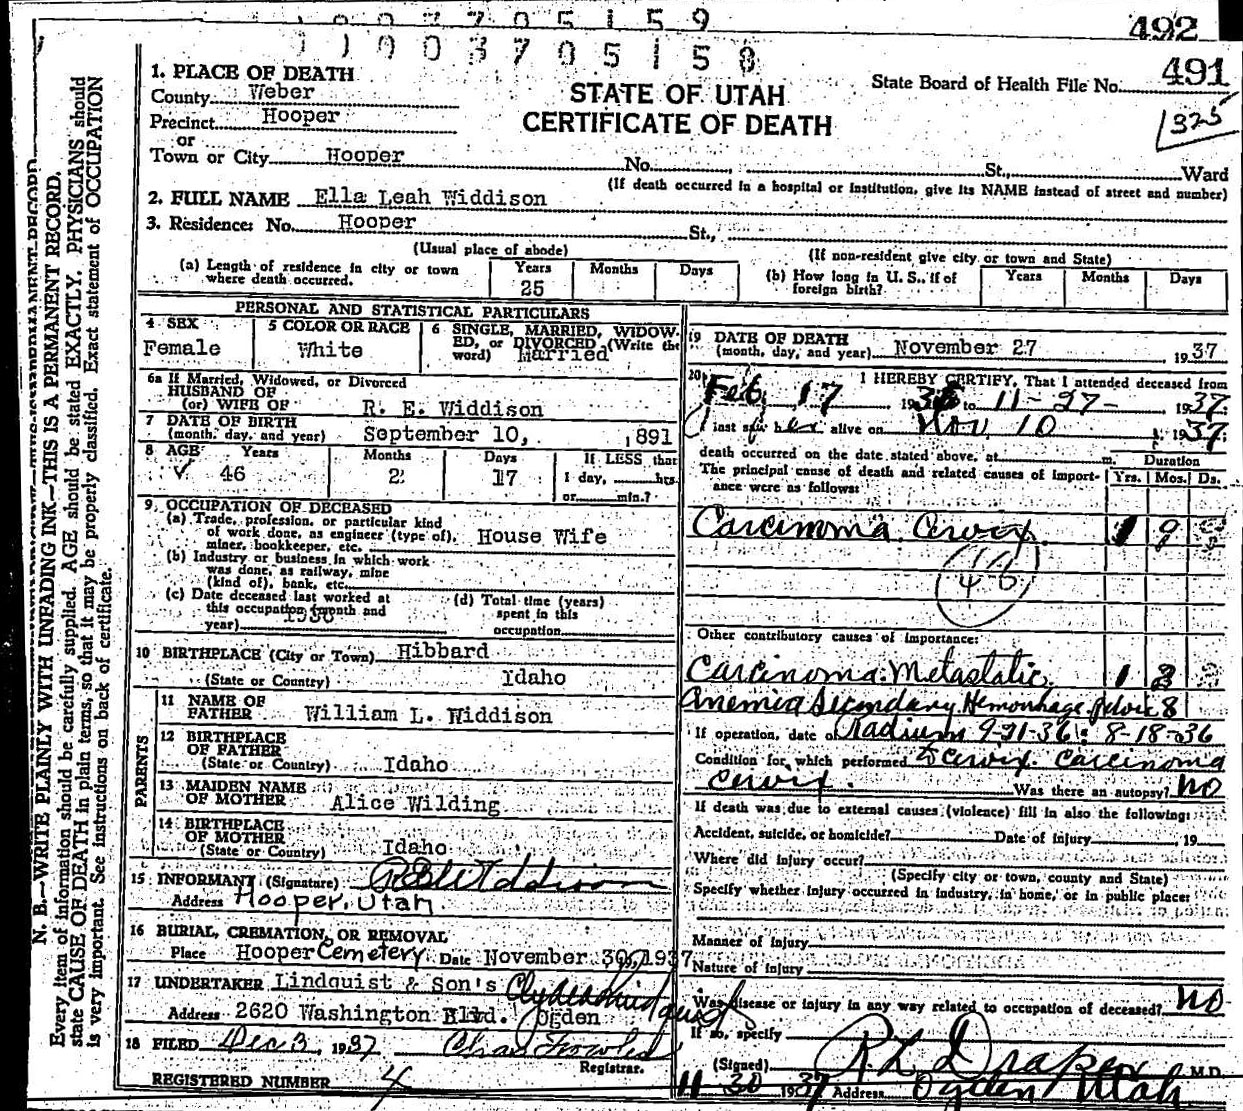 1003705159
492
1003705158
State Board of Health File No. 491
325
STATE OF UTAH
CERTIFICATE OF DEATH
1. PLACE OF DEATH
County Weber
Precinct Hooper
or
Town or City Hooper No. St., Ward
(If death occurred in a hospital or institution, give its NAME instead of street and number)
2. FULL NAME Ella Leah Widdison
3. Residence: No. Hooper St.,
(Usual place of abode) (If non-resident give city or town and State)
(a) Length of residence in city or town where death occurred. Years 25 Months Days
(b) How long in U. S., if of foreign birth? Years Months Days
PERSONAL AND STATISTICAL PARTICULARS
4 SEX Female
5 COLOR OR RACE White
6 SINGLE, MARRIED, WIDOWED, or DIVORCED (Write the word) Married
6a If Married, Widowed, or Divorced
HUSBAND OF
(or) WIFE OF R. E. Widdison
7 DATE OF BIRTH
(month, day, and year) September 10, 1891
8 AGE Years 46 Months 2 Days 17 If LESS than 1 day, hrs. or min.?
9. OCCUPATION OF DECEASED
(a) Trade, profession, or particular kind
of work done, as engineer (type of), House Wife
miner, bookkeeper, etc.
(b) Industry or business in which work
was done, as railway, mine
(kind of), bank, etc.
(c) Date deceased last worked at
this occupation (month and
year) 1936
(d) Total time (years)
spent in this
occupation
10 BIRTHPLACE (City or Town) Hibbard
(State or Country) Idaho
PARENTS
11 NAME OF
FATHER William L. Widdison
12 BIRTHPLACE
OF FATHER
(State or Country) Idaho
13 MAIDEN NAME
OF MOTHER Alice Wilding
14 BIRTHPLACE
OF MOTHER
(State or Country) Idaho
15 INFORMANT (Signature) R E Widdison
Address Hooper, Utah
16 BURIAL, CREMATION, OR REMOVAL
Place Hooper Cemetery Date November 30, 1937
17 UNDERTAKER Lindquist & Son's Clyde Lindquist
Address 2620 Washington Blvd. Ogden
18 FILED Dec 3, 1937 Chas Fowles
Registrar.
REGISTERED NUMBER 4
19 DATE OF DEATH
(month, day, and year) November 27, 1937
20 I HEREBY CERTIFY, That I attended deceased from
Feb. 17 1936 to 11-27- 1937
I last saw her alive on Nov. 10 1937
death occurred on the date stated above, at m. Duration
The principal cause of death and related causes of importance were as follows: Yrs. Mos. Ds.
Carcinoma Cervix 1 9
46
Other contributory causes of importance:
Carcinoma Metastatic 1
Anemia Secondary Hemorrhage pelvic 8
If operation, date of Radium 9-21-36: 8-18-36
Condition for which performed Carcinoma
Cervix. Was there an autopsy? No
If death was due to external causes (violence) fill in also the following:
Accident, suicide, or homicide? Date of injury , 19
Where did injury occur?
(Specify city or town, county and State)
Specify whether injury occurred in industry, in home, or in public place:
Manner of Injury
Nature of Injury
Was disease or injury in any way related to occupation of deceased? No
If so, specify
(Signed) R L Draper M.D.
11 30 1937 Address Ogden Utah
N. B.—WRITE PLAINLY WITH UNFADING INK—THIS IS A PERMANENT RECORD.
Every item of information should be carefully supplied. AGE should be stated EXACTLY. PHYSICIANS should
state CAUSE OF DEATH in plain terms, so that it may be properly classified. Exact statement of OCCUPATION
is very important. See instructions on back of certificate.